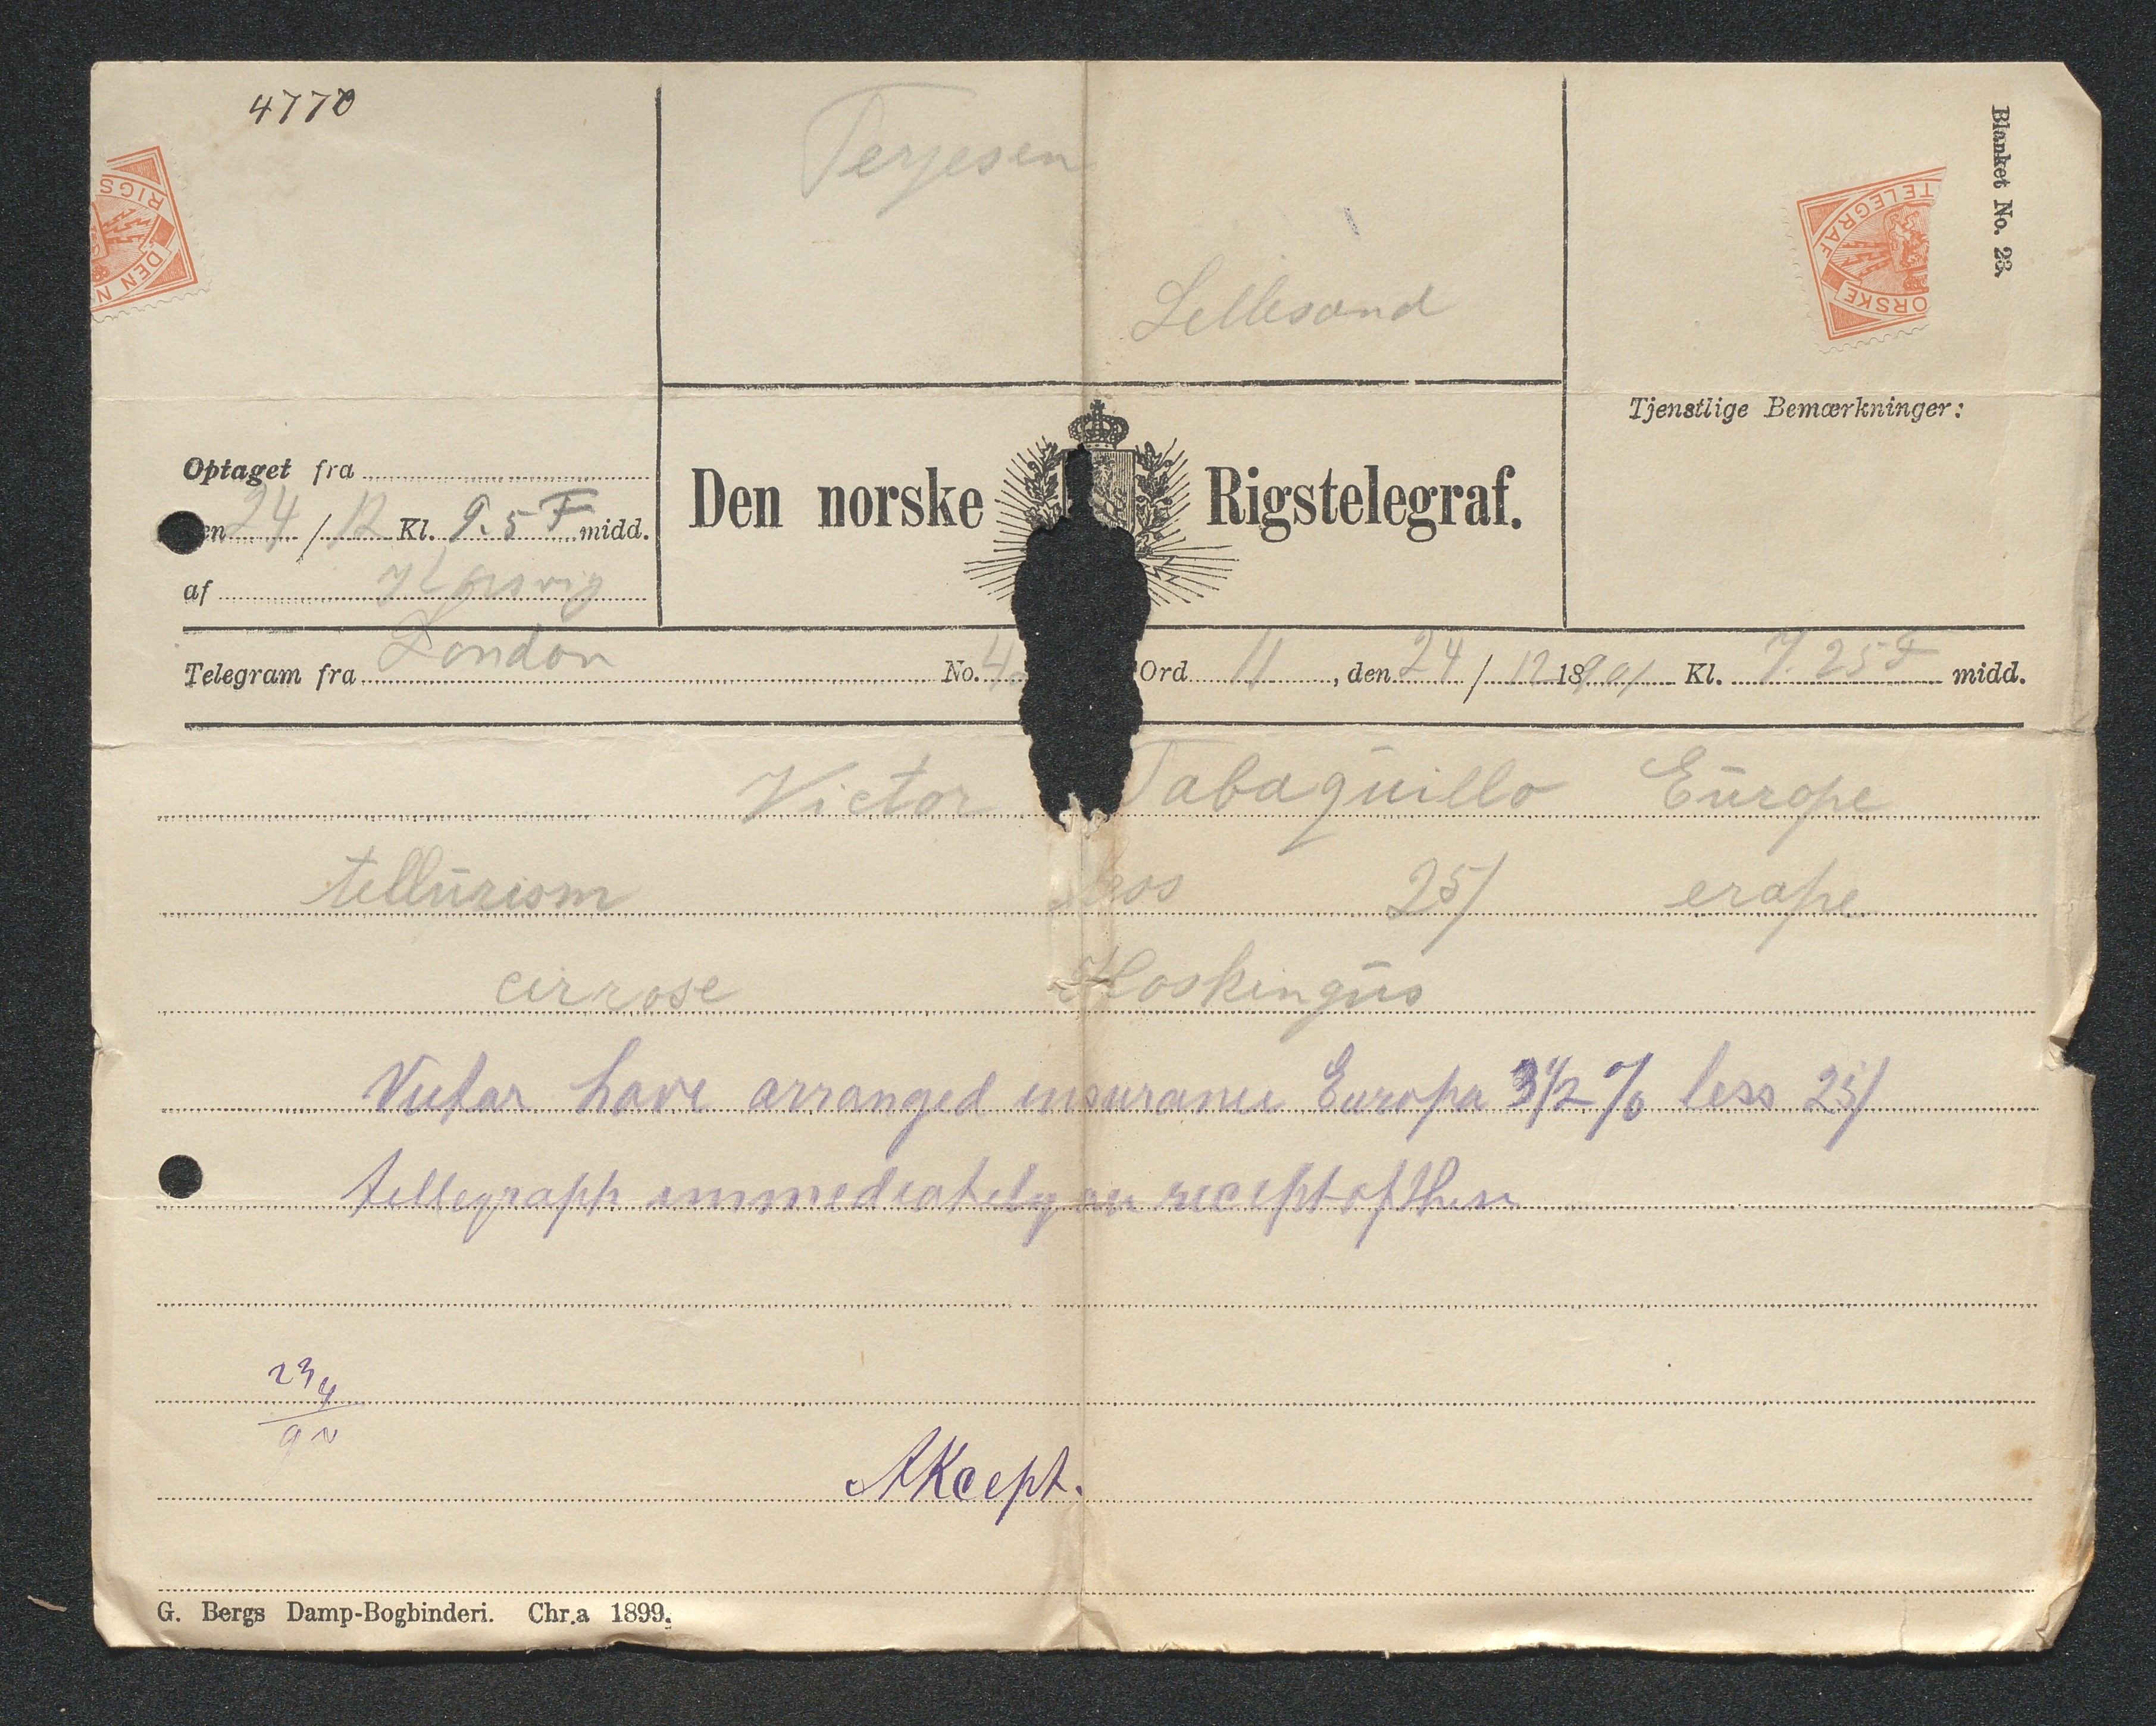 4770
RIGS
DEN N
Terjesen
Lillesand
Blanket No. 23.
TELEGRAF
ORSKE
Tjenstlige Bemærkninger:
Optaget fra
en 24 / 12 Kl. 9.5 F midd.
af
Den norske Rigstelegraf.
Telegram fra London No. 4 Ord 11, den 24 / 12 1901 Kl. 7.25 F midd.
Victor Tabaquillo Europe
tellurism 25/ erape
cirrose Hoskingus
Victor have arranged insurance Europa 3 1/2 % less 25/
tellegraph immediately on recept of this
23/4
AKcept.
G. Bergs Damp-Bogbinderi. Chr.a 1899.